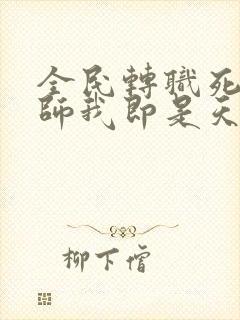 全民轉職死
師我即是天
柳下僧